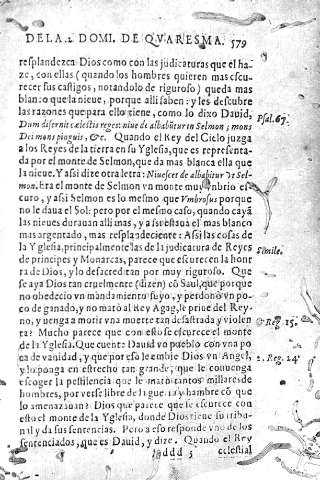 DE LA .2. DOMI. DE QVARESMA. 579
resplandezca Dios como con las judicaturas que el ha-
ze, con ellas (quando los hombres quieren mas escu-
recer sus castigos, notandolo de riguroso) queda mas
blanco que la nieue, porque alli saben: y les descubre
las razones que para ello tiene, como lo dixo Dauid,
Psal. 67.
Dum discernit cælestis reges: niue dealbabitur in Selmon; mons
Dei mons pinguis, &c. Quando el Rey del Cielo juzga
a los Reyes de la tierra en su Yglesia, que es representa-
da por el monte de Selmon, que da mas blanca ella que
la nieue. Y assi dize otra letra: Niuescet dealbabitur Sel-
mon. Era el monte de Selmon vn monte muy vmbrio es-
curo, y assi Selmon es lo mesmo que Vmbrosus porque
no le daua el Sol: pero por el mesmo caso, quando cayã
las nieues durauan alli mas, y assi estaua el mas blanco
mas argentado, mas resplandeciente: Assi las cosas de
la Yglesia, principalmente las de la judicatura de Reyes
Simile.
de principes y Monarcas, parece que escurecen la hon
ra de Dios, y lo desacreditan por muy riguroso. Que
se aya Dios tan cruelmente (dizen) cõ Saul, que porque
no obedecio vn mandamiento suyo, y perdonò vn po-
co de ganado, y no matò al Rey Agag, le priue del Rey-
no, y uenga a morir vna muerte tan desastrada y violen
1. Reg. 15.
ta? Mucho parece que con esto se escurece el monte
de la Yglesia. Que cuente Dauid vn pueblo con vna po
ca de vanidad, y que por esso le embie Dios vn Angel,
2. Reg. 24.
y lo ponga en estrecho tan grande, que le conuenga
escoger la pestilencia que le matò tantos millares de
hombres, por verse libre de la guerra y hambre cõ que
lo amenazauan? Dios que parece que se escurece con
esto el monte de la Yglesia, donde Dios tiene su tribu-
nal y da sus sentencias. Pero a esso responde vno de los
sentenciados, que es Dauid, y dize. Quando el Rey
ddd 5 celestial